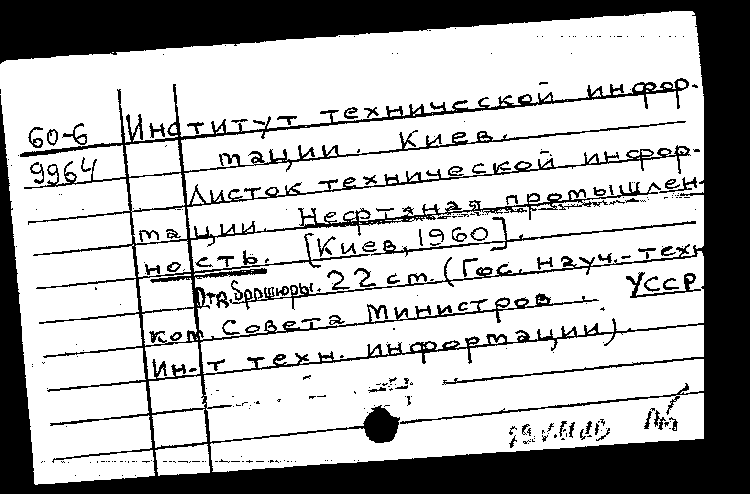 60-6
9964
Институт технической инфор-
мации. Киев.
Листок технической инфор-
мации. Нефтяная промышлен-
ность. [Киев, 1960].
Отд. брошюры. 22 см. (Гос. науч.-техн
ком. Совета Министров. УССР.
Ин-т техн. информации).